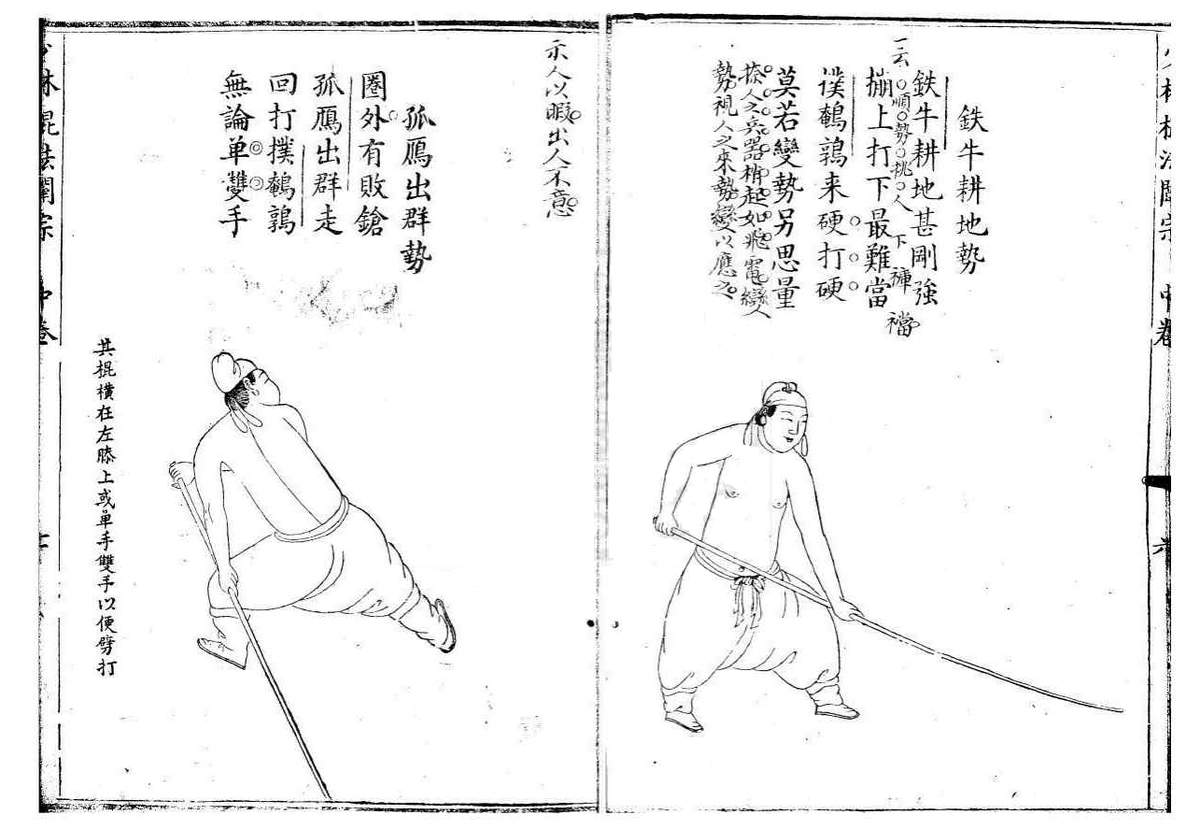 少林棍法闡宗 中卷
鉄牛耕地勢
鉄牛耕地甚剛強
一云順勢挑人下褲襠
掤上打下最難當
撲鵪鶉来硬打硬
莫若變勢另思量
搽人之兵器梢起如飛電變人
勢視人之来勢變以應之
示人以暇出人不意
孤鴈出群勢
圏外有敗鎗
孤鴈出群走
回打撲鵪鶉
無論单雙手
其棍横在左膝上或单手雙手以便劈打
少林棍法闡宗 中卷